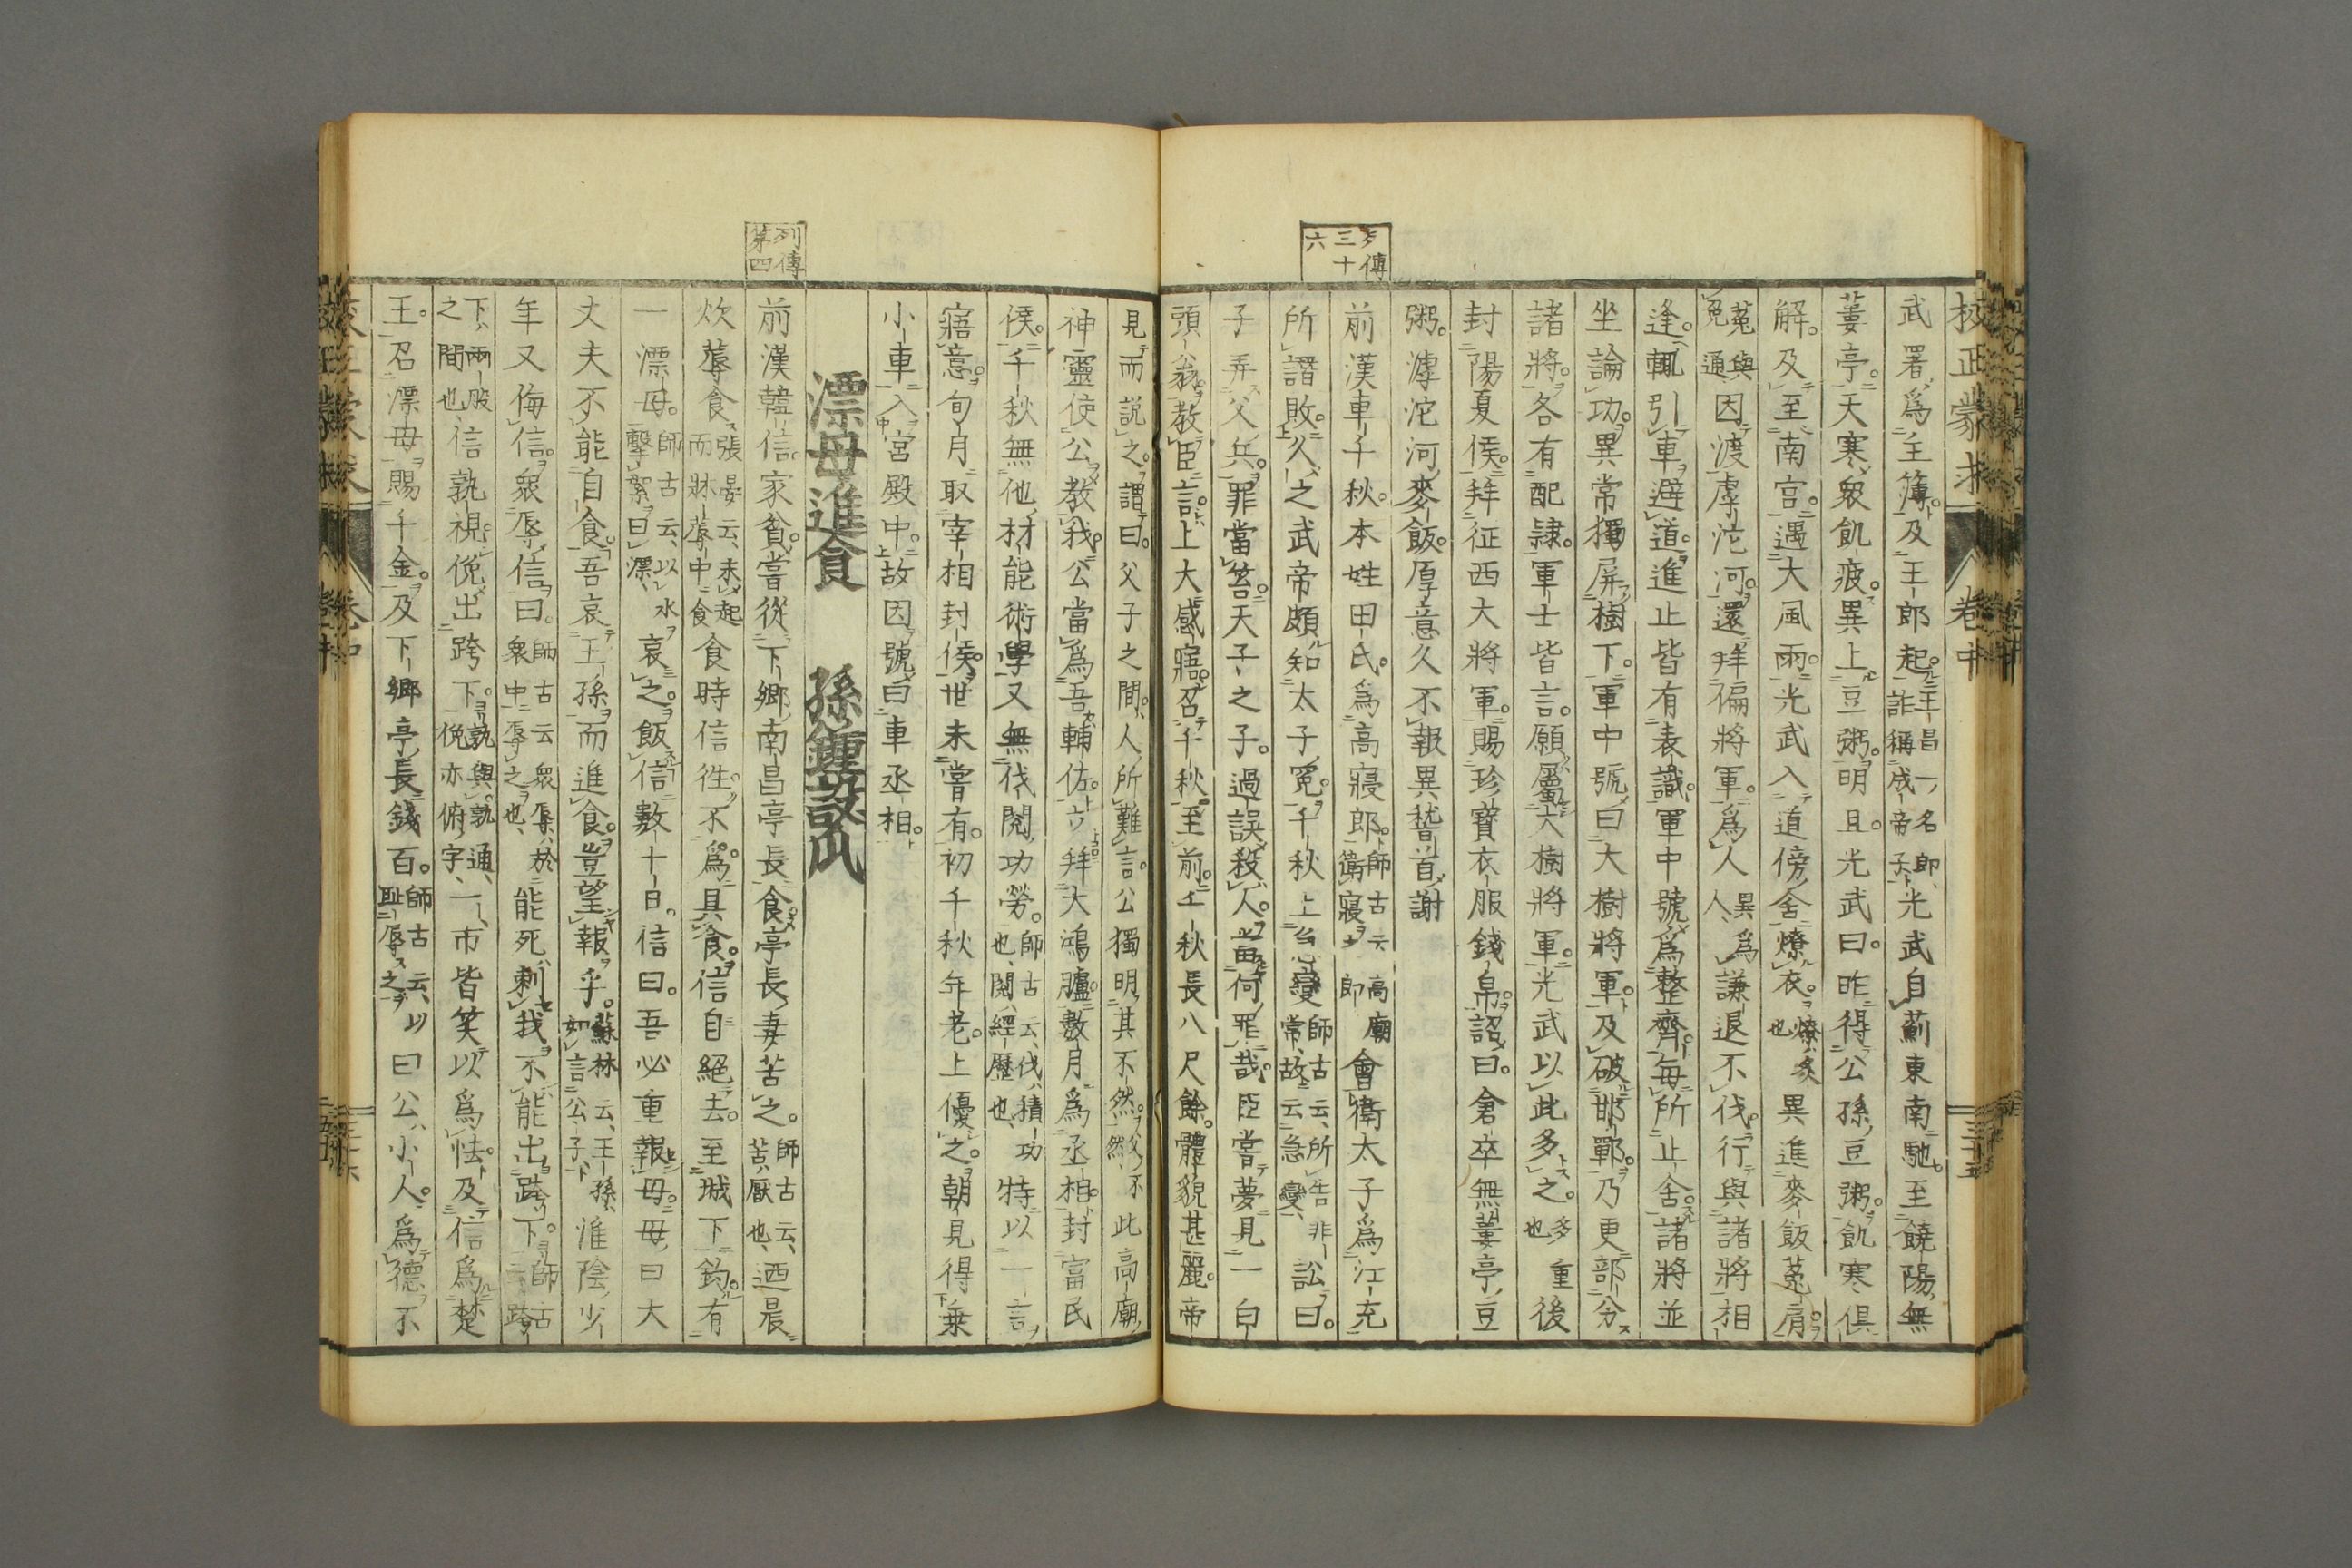 校正蒙求 卷中 三十五
武署爲主簿及王郎起王昌一名郎詐稱成帝子光武自薊東南馳至饒陽無
蔞亭天寒衆飢疲異上豆粥明旦光武曰昨得公孫豆粥飢寒俱
解及至南宮遇大風雨光武入道傍舍燎衣燎炙也異進麥飯菟肩
菟與兔通因渡虖沱河還拜偏將軍爲人異爲人謙退不伐行與諸將相
逢輒引車避道進止皆有表識軍中號爲整齊每所止舍諸將並
坐論功異常獨屏樹下軍中號曰大樹將軍及破邯鄲乃更部分
諸將各有配隷軍士皆言願屬大樹將軍光武以此多之多重也後
封陽夏侯拜征西大將軍賜珍寶衣服錢帛詔曰倉卒無蔞亭豆
粥滹沱河麥飯厚意久不報異稽首謝
列傳三十六
前漢車千秋本姓田氏爲高寢郎師古云高廟衛寢之郎會衛太子爲江充
所譖敗久之武帝頗知太子冤千秋上急變師古云所告非常故云急變訟曰
子弄父兵罪當笞天子之子過誤殺人當何罪哉臣嘗夢見一白
頭翁教臣言上大感寤召千秋至前千秋長八尺餘體貌甚麗帝
見而說之謂曰父子之間人所難言公獨明其不然此高廟
神靈使公教我公當爲吾輔佐立拜大鴻臚數月爲丞相封富民
侯千秋無他材能術學又無伐閱功勞師古云伐積功也閱經歷也特以一言
寤意旬月取宰相封侯世未嘗有初千秋年老上優之朝見得乗
小車入宮殿中故因號曰車丞相
漂母進食 孫鍾設瓜
列傳第四
前漢韓信家貧嘗從下鄉南昌亭長食亭長妻苦之師古云苦厭也迺晨
炊蓐食張晏云未起而牀蓐中食食時信徃不爲具食信自絕去至城下釣有
一漂母師古云以水擊絮曰漂哀之飯信數十日信曰吾必重報母母曰大
丈夫不能自食吾哀王孫而進食豈望報乎蘇林云王孫如言公子淮陰少
年又侮信衆辱信曰師古云衆辱於衆中辱之也能死刺我不能出跨下師古云跨
下兩股之間也信孰視俛出跨下孰與熟通俛亦俯字一市皆笑以爲怯及信爲楚
王召漂母賜千金及下鄉亭長錢百師古云以恥辱之曰公小人爲德不